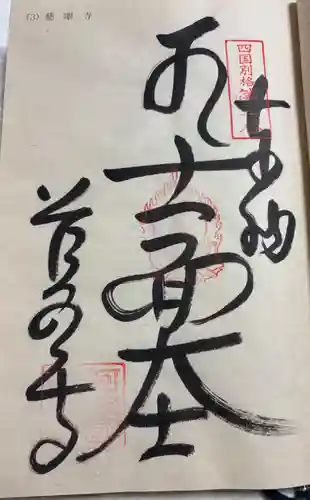 (3) 慈眼寺
四国別格第三
奉納
十一面大士
慈眼寺